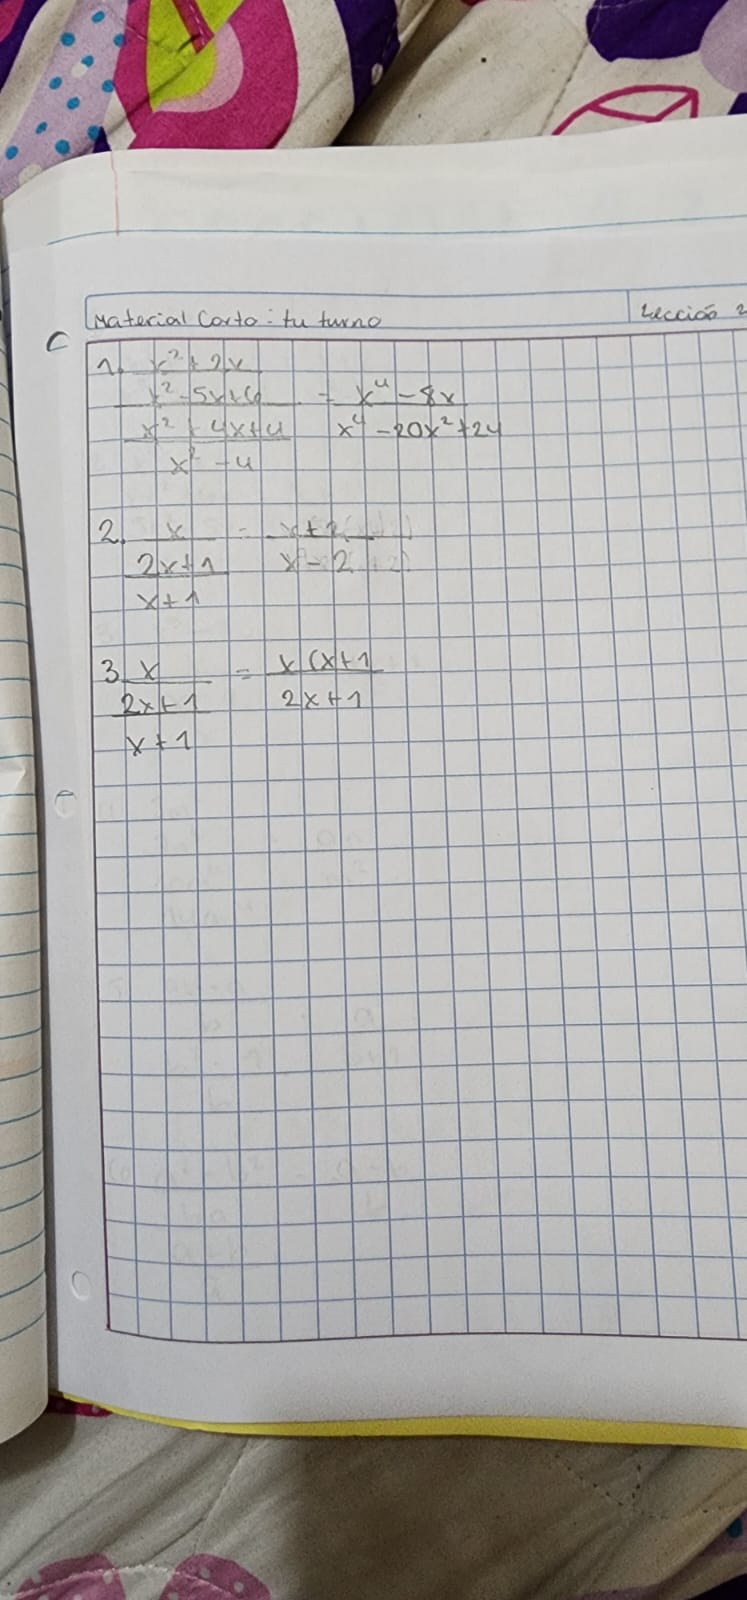 Material Corto: tu turno
Lección 2
1. x² + 2x
x² - 5x + 6 = x⁴ - 8x
x² + 4x + 4 x⁴ - 20x² + 24
x² - 4
2. x = x + 2
2x + 1 x - 2
x + 1
3 x = x (x + 1
2x + 1 2x + 1
x + 1